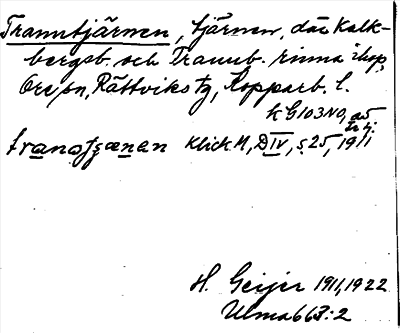 Tranutjärnen, tjärnen, där Kalk-
bergsb. och Tranub. rinna ihop,
Ore sn, Rättviks tg, Kopparb. l.
k G103 NO, a5
tranotjænan Klick. M, D IV, s. 25, 1911
H. Geijer 1911, 1922
Ulma 663:2